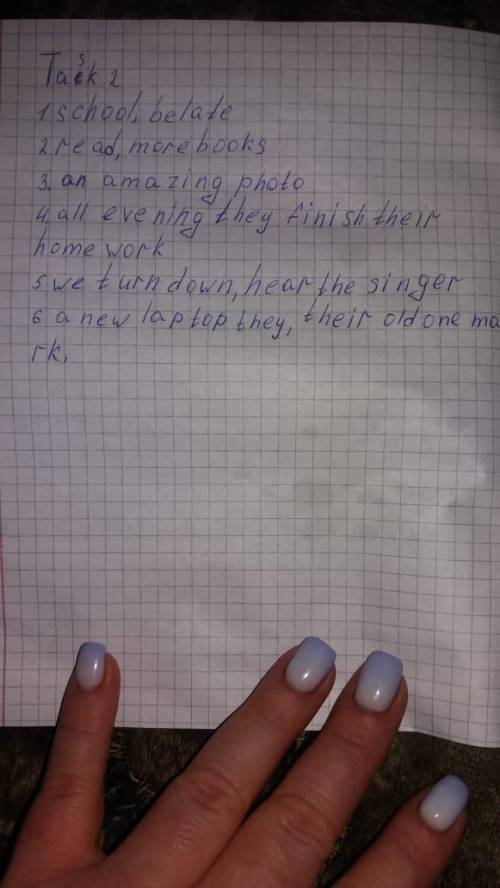 Task 2
1 school, be late
2 read, more books
3. an amazing photo
4. all evening they finish their
home work
5 we turn down, hear the singer
6 a new laptop they, their old one ma
rk.